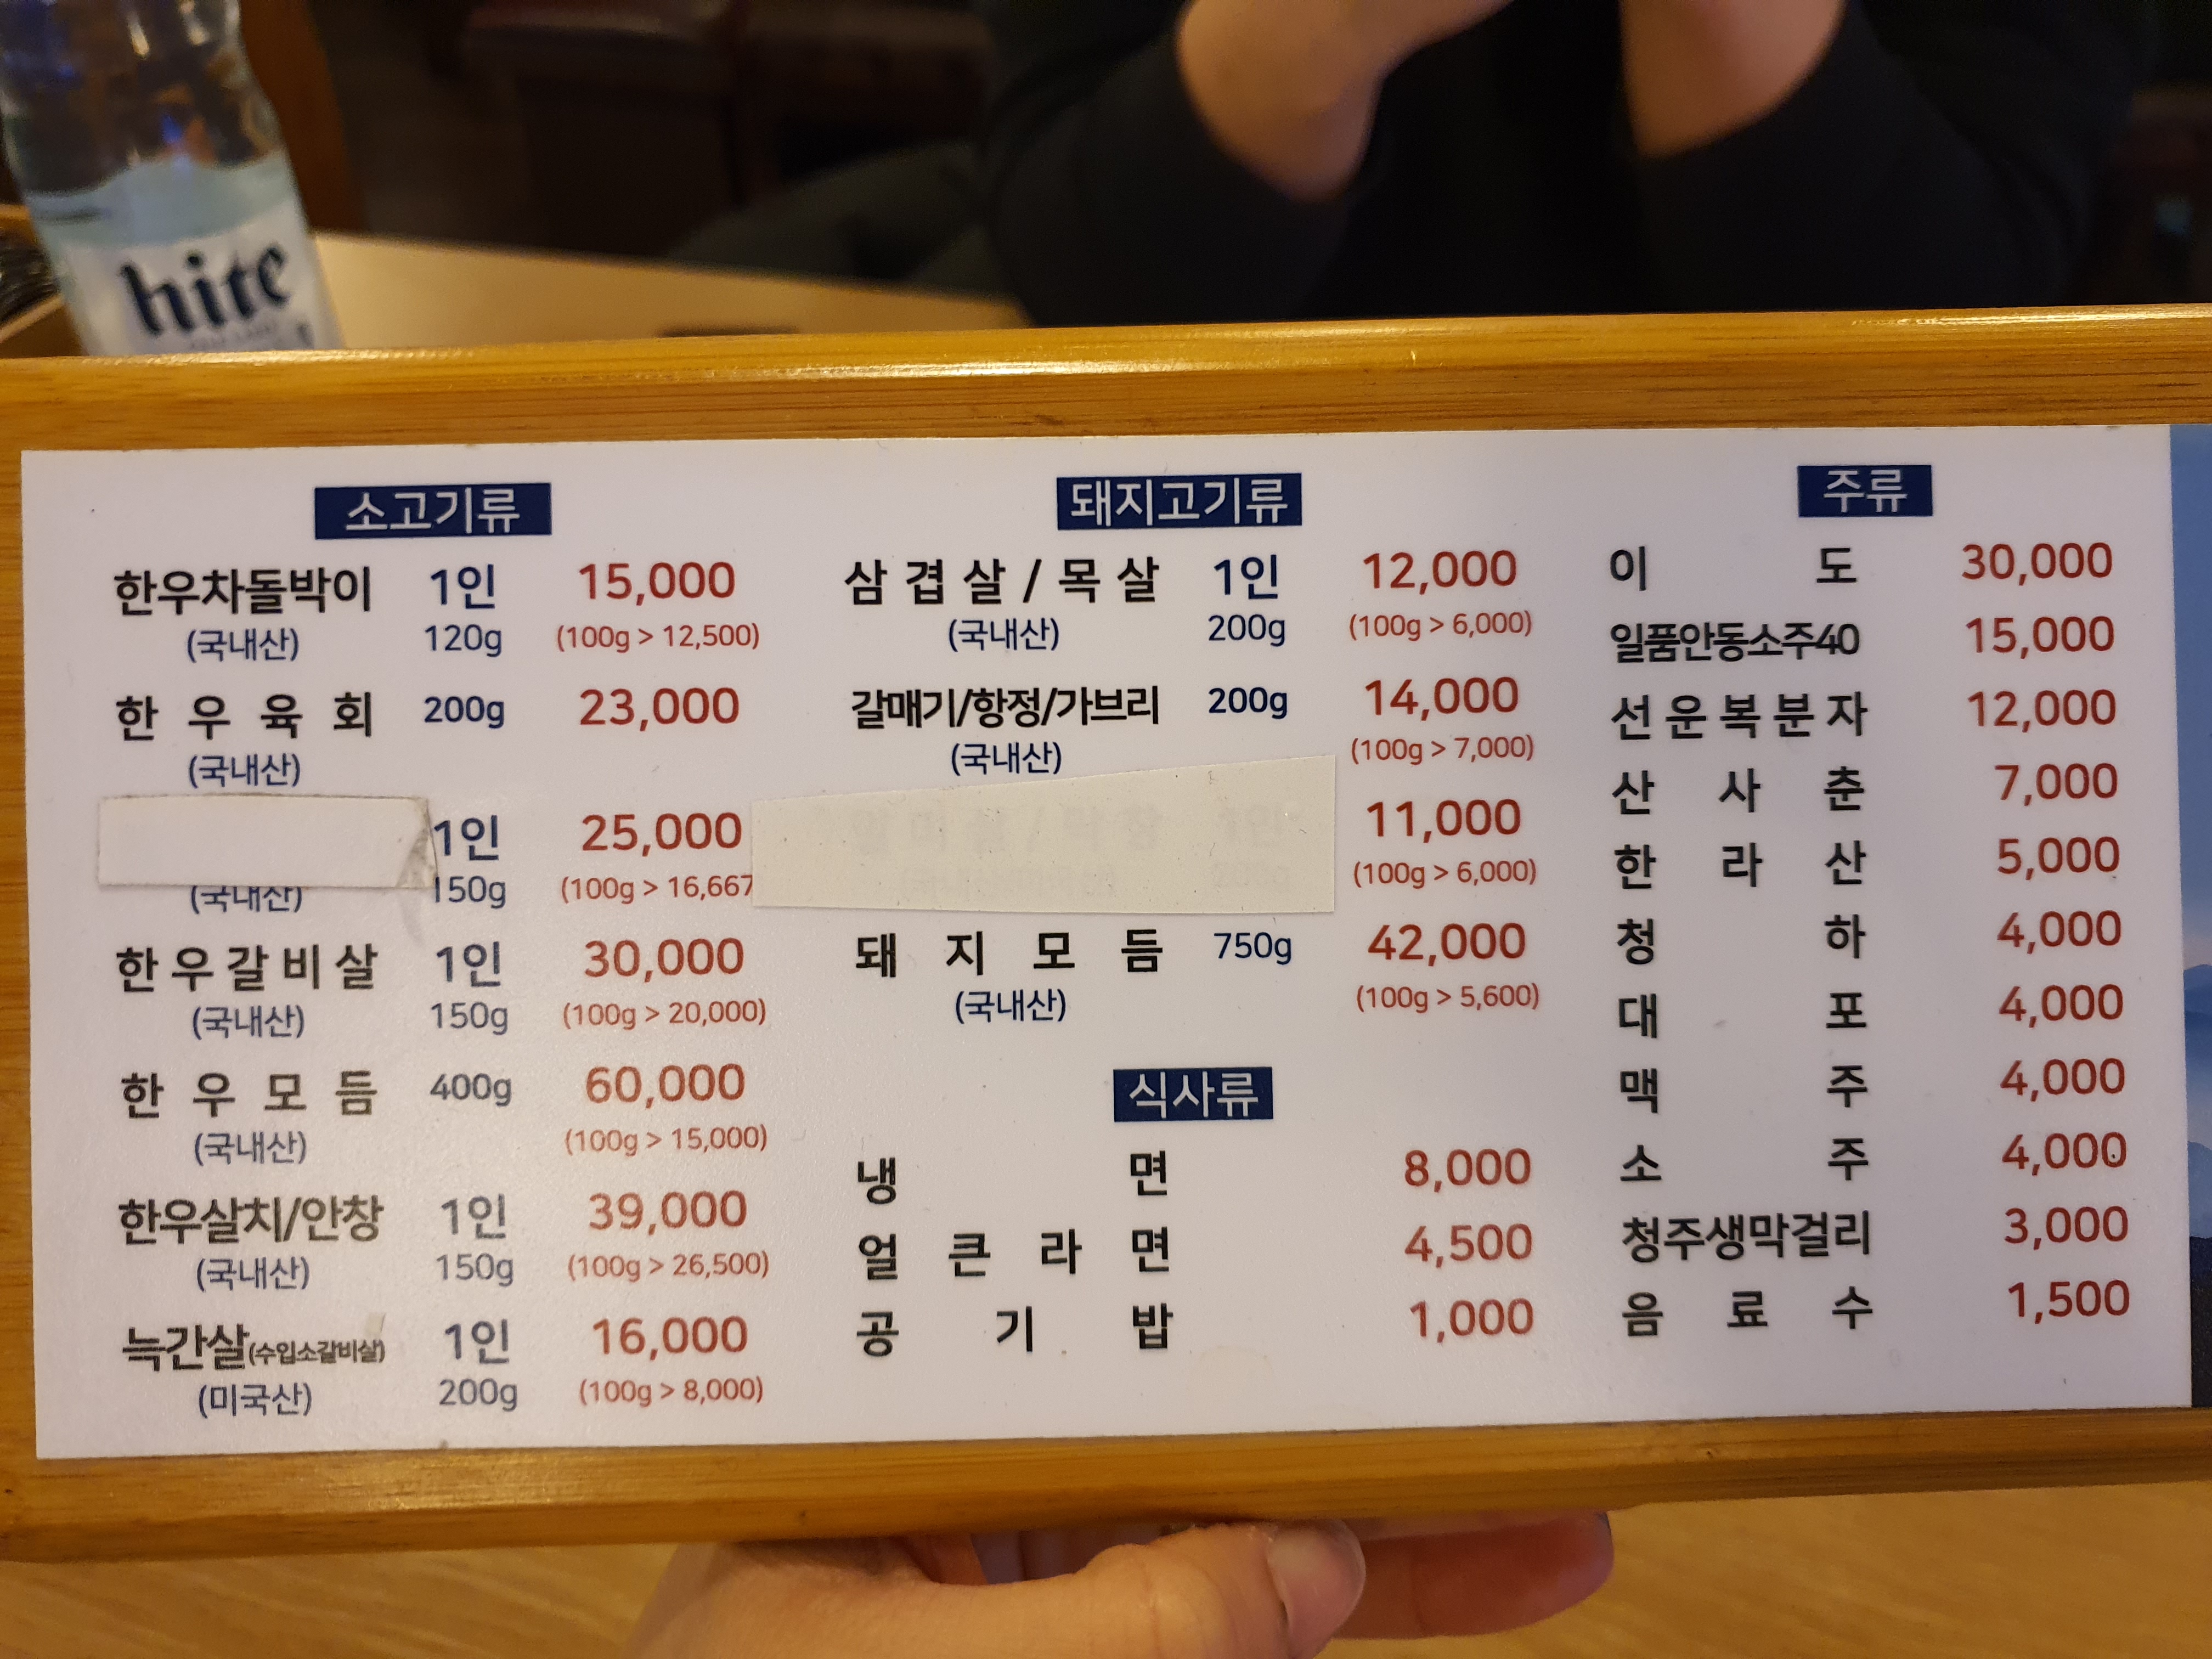 hite
소고기류
한우차돌박이 1인 15,000
(국내산) 120g (100g > 12,500)
한우육회 200g 23,000
(국내산)
1인 25,000
(국내산) 150g (100g > 16,667
한우갈비살 1인 30,000
(국내산) 150g (100g > 20,000)
한우모듬 400g 60,000
(국내산) (100g > 15,000)
한우살치/안창 1인 39,000
(국내산) 150g (100g > 26,500)
늑간살(수입소갈비살) 1인 16,000
(미국산) 200g (100g > 8,000)
돼지고기류
삼겹살/목살 1인 12,000
(국내산) 200g (100g > 6,000)
갈매기/항정/가브리 200g 14,000
(국내산) (100g > 7,000)
11,000
(100g > 6,000)
돼지모듬 750g 42,000
(국내산) (100g > 5,600)
식사류
냉면 8,000
얼큰라면 4,500
공기밥 1,000
주류
이도 30,000
일품안동소주40 15,000
선운복분자 12,000
산사춘 7,000
한라산 5,000
청하 4,000
대포 4,000
맥주 4,000
소주 4,000
청주생막걸리 3,000
음료수 1,500